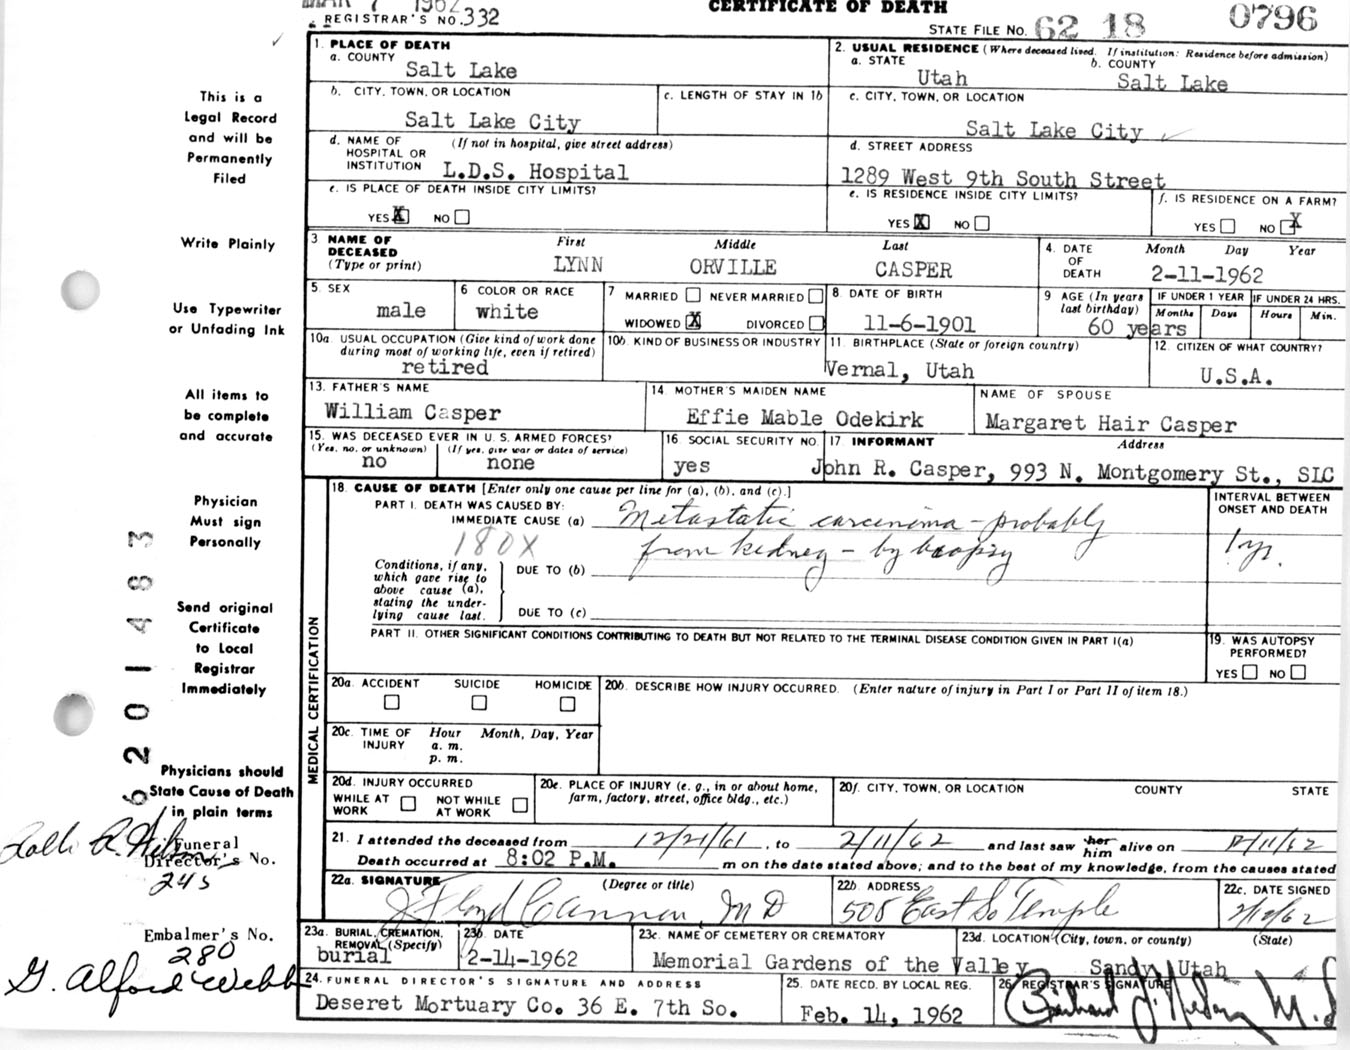 MAR 7 1962
CERTIFICATE OF DEATH
REGISTRAR'S NO. 332
STATE FILE NO. 62 18 0796
1. PLACE OF DEATH
a. COUNTY
Salt Lake
2. USUAL RESIDENCE (Where deceased lived. If institution: Residence before admission)
a. STATE b. COUNTY
Utah Salt Lake
b. CITY, TOWN, OR LOCATION
Salt Lake City
c. LENGTH OF STAY IN 1b
c. CITY, TOWN, OR LOCATION
Salt Lake City
d. NAME OF HOSPITAL OR INSTITUTION (If not in hospital, give street address)
L.D.S. Hospital
d. STREET ADDRESS
1289 West 9th South Street
e. IS PLACE OF DEATH INSIDE CITY LIMITS?
YES X NO
e. IS RESIDENCE INSIDE CITY LIMITS?
YES X NO
f. IS RESIDENCE ON A FARM?
YES NO X
3 NAME OF DECEASED (Type or print)
First Middle Last
LYNN ORVILLE CASPER
4. DATE OF DEATH Month Day Year
2-11-1962
5. SEX
male
6 COLOR OR RACE
white
7 MARRIED NEVER MARRIED
WIDOWED X DIVORCED
8. DATE OF BIRTH
11-6-1901
9 AGE (In years last birthday)
60 years
IF UNDER 1 YEAR IF UNDER 24 HRS.
Months Days Hours Min.
10a. USUAL OCCUPATION (Give kind of work done during most of working life, even if retired)
retired
10b. KIND OF BUSINESS OR INDUSTRY
11. BIRTHPLACE (State or foreign country)
Vernal, Utah
12. CITIZEN OF WHAT COUNTRY?
U.S.A.
13. FATHER'S NAME
William Casper
14. MOTHER'S MAIDEN NAME
Effie Mable Odekirk
NAME OF SPOUSE
Margaret Hair Casper
15. WAS DECEASED EVER IN U.S. ARMED FORCES?
(Yes, no, or unknown) (If yes, give war or dates of service)
no none
16. SOCIAL SECURITY NO.
yes
17. INFORMANT Address
John R. Casper, 993 N. Montgomery St., SLC
MEDICAL CERTIFICATION
18. CAUSE OF DEATH [Enter only one cause per line for (a), (b), and (c).]
PART I. DEATH WAS CAUSED BY:
IMMEDIATE CAUSE (a) Metastatic carcinoma - probably
180X from kidney - by biopsy
Conditions, if any, which gave rise to above cause (a), stating the underlying cause last.
DUE TO (b)
DUE TO (c)
INTERVAL BETWEEN ONSET AND DEATH
1 yr.
PART II. OTHER SIGNIFICANT CONDITIONS CONTRIBUTING TO DEATH BUT NOT RELATED TO THE TERMINAL DISEASE CONDITION GIVEN IN PART I(a)
19. WAS AUTOPSY PERFORMED?
YES NO
20a. ACCIDENT SUICIDE HOMICIDE
20b. DESCRIBE HOW INJURY OCCURRED. (Enter nature of injury in Part I or Part II of item 18.)
20c. TIME OF INJURY Hour Month, Day, Year
a. m.
p. m.
20d. INJURY OCCURRED
WHILE AT WORK NOT WHILE AT WORK
20e. PLACE OF INJURY (e. g., in or about home, farm, factory, street, office bldg., etc.)
20f. CITY, TOWN, OR LOCATION COUNTY STATE
21. I attended the deceased from 12/21/61, to 2/11/62 and last saw her him alive on 2/11/62
Death occurred at 8:02 P.M. m on the date stated above; and to the best of my knowledge, from the causes stated
22a. SIGNATURE (Degree or title)
J Floyd Cannon, MD
22b. ADDRESS
508 East So Temple
22c. DATE SIGNED
2/12/62
23a. BURIAL, CREMATION, REMOVAL (Specify)
burial
23b. DATE
2-14-1962
23c. NAME OF CEMETERY OR CREMATORY
Memorial Gardens of the Valley
23d. LOCATION (City, town, or county) (State)
Sandy, Utah
24. FUNERAL DIRECTOR'S SIGNATURE AND ADDRESS
Deseret Mortuary Co. 36 E. 7th So.
25. DATE RECD. BY LOCAL REG.
Feb. 14, 1962
26. REGISTRAR'S SIGNATURE
This is a
Legal Record
and will be
Permanently
Filed
Write Plainly
Use Typewriter
or Unfading Ink
All items to
be complete
and accurate
Physician
Must sign
Personally
Send original
Certificate
to Local
Registrar
Immediately
Physicians should
State Cause of Death
in plain terms
Funeral
Director's No.
245
Embalmer's No.
280
G. Alford Webb
6201483